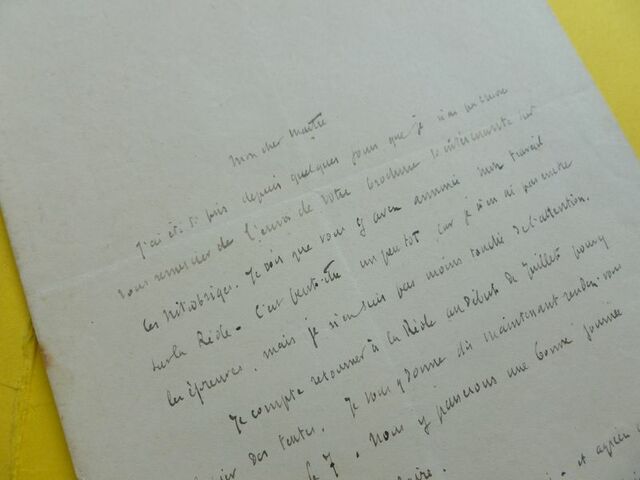 Mon cher Maître
J'ai été si pris depuis quelques jours que je n'ai pu encore
vous remercier de l'envoi de votre brochure si intéressante sur
les Nitiobriges. Je vois que vous y avez annoncé mon travail
sur la Réole - C'est peut-être un peu tôt car je n'en ai pas encore
les épreuves, mais je n'en suis pas moins touché de l'attention.
Je compte retourner à la Réole au début de Juillet pour y
des textes. Je vous y donne dès maintenant rendez-vous
le 7. Nous y passerons une bonne journée
et agréez